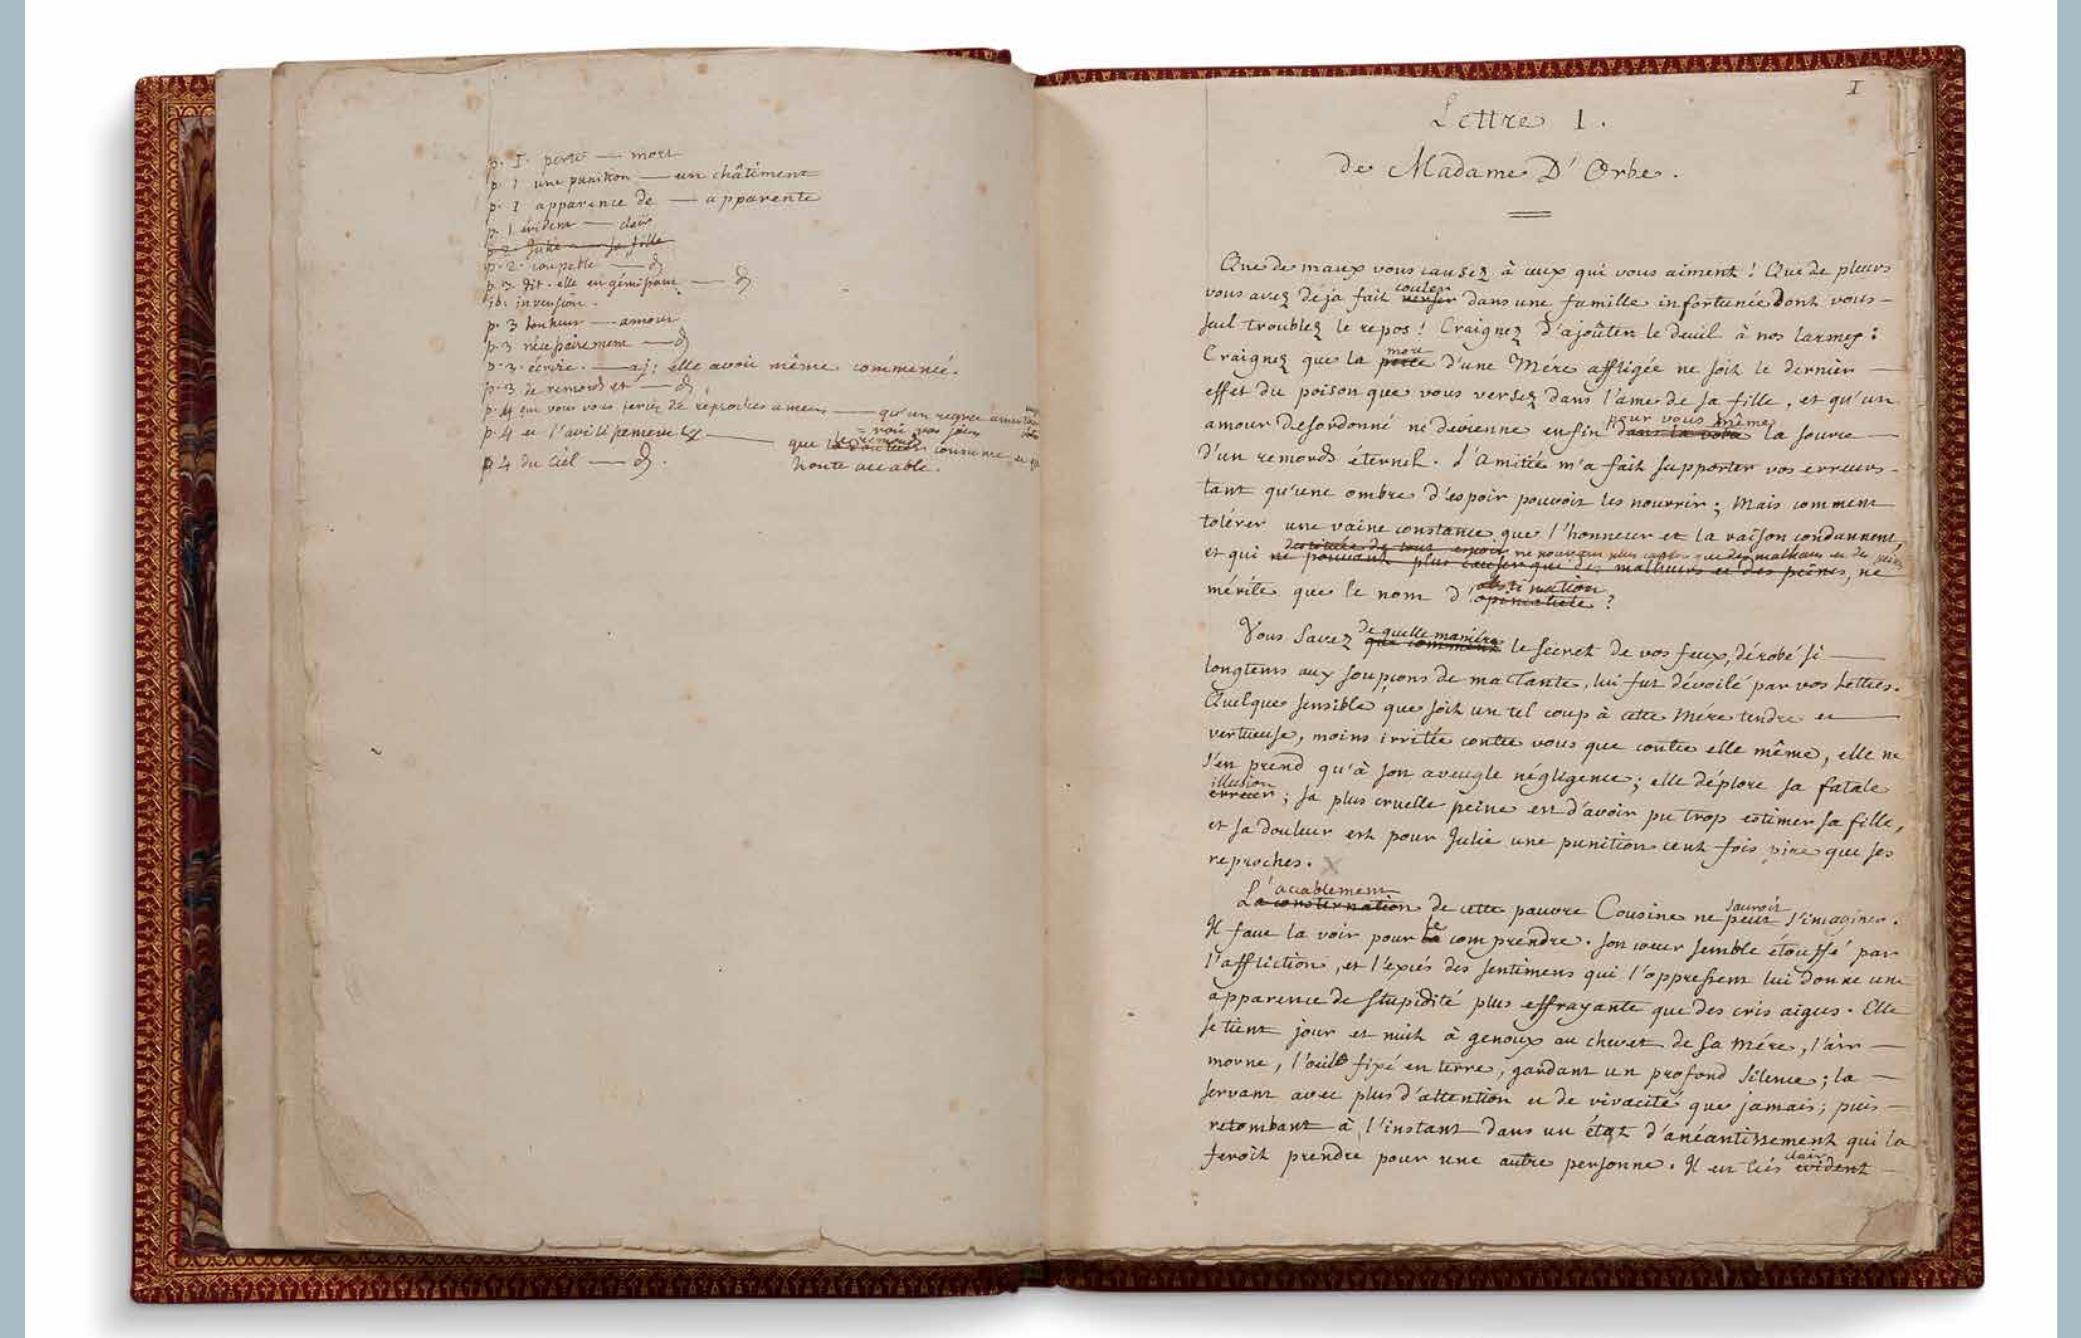 p. I. perte — mort
p. 1 une punition — un châtiment
p. 1 apparence de — apparente
p. 1 évident — clair
p. 2 Julie — sa fille
p. 2. coupable —
p. 3. dit-elle en gémissant —
ib: inversion.
p. 3 bonheur — amour
p. 3 nécessairement —
p. 3. écrire. — aj: elle avoit même commencé.
p. 3 de remords et —
p. 4 que vous vous feries de reproches amers — qu'un regret amer
= roit vos jours
p. 4 et l'avilissement — que le remords consume et
p 4 du Ciel — honte accable.
I
Lettre I.
de Madame D'Orbe.
Que de maux vous causez à ceux qui vous aiment ! Que de pleurs
couler
vous avez déja fait verser dans une famille infortunée dont vous –
seul troublez le repos ! Craignez d'ajoûter le deuil à nos larmes :
mort
Craignez que la perte d'une Mére affligée ne soit le dernier —
effet du poison que vous versez dans l'ame de sa fille, et qu'un
pour vous même
amour desordonné ne devienne enfin dans la votre la source —
d'un remords éternel. L'amitié m'a fait supporter vos erreurs –
tant qu'une ombre d'espoir pouvoit les nourrir ; Mais comment
tolérer une vaine constance que l'honneur et la raison condannent,
destituée de tout espoir ne pouvant plus causer que des malheurs et des peines
et qui ne pouvant plus causer que des malheurs et des peines, ne
obstination
mérite que le nom d'opiniatreté ?
de quelle maniére
Vous savez que comment le secret de vos feux, dérobé si —
longtems aux soupçons de ma Tante, lui fut dévoilé par vos Lettres.
Quelque sensible que soit un tel coup à cette Mére tendre et —
vertueuse, moins irritée contre vous que contre elle même, elle ne
s'en prend qu'à son aveugle négligence ; elle déplore sa fatale
illusion
erreur ; sa plus cruelle peine est d'avoir pu trop estimer sa fille,
et sa douleur est pour Julie une punition cent fois pire que ses
reproches. X
L'accablement
La consternation de cette pauvre Cousine ne peut sauroit s'imaginer.
le
Il faut la voir pour la comprendre. Son cœur semble étouffé par
l'affliction, et l'excés des sentimens qui l'oppressent lui donne une
apparence de stupidité plus effrayante que des cris aigus. Elle
se tient jour et nuit à genoux au chevet de sa Mére, l'air —
morne, l'œil fixé en terre, gardant un profond silence ; la —
servant avec plus d'attention et de vivacité que jamais ; puis –
retombant à l'instant dans un état d'anéantissement qui la
clair
feroit prendre pour une autre personne. Il est très évident –